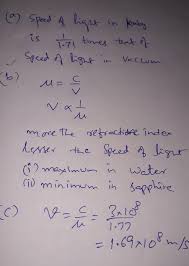 (a) Speed of light in ruby
is 1/1.71 times that of
Speed of light in vaccum
(b) μ = c/v
v ∝ 1/μ
more the refractive index
lesser the speed of light
(i) maximum in water
(ii) minimum in sapphire
(c) v = c/μ = 3×10⁸/1.77
= 1.69×10⁸ m/s